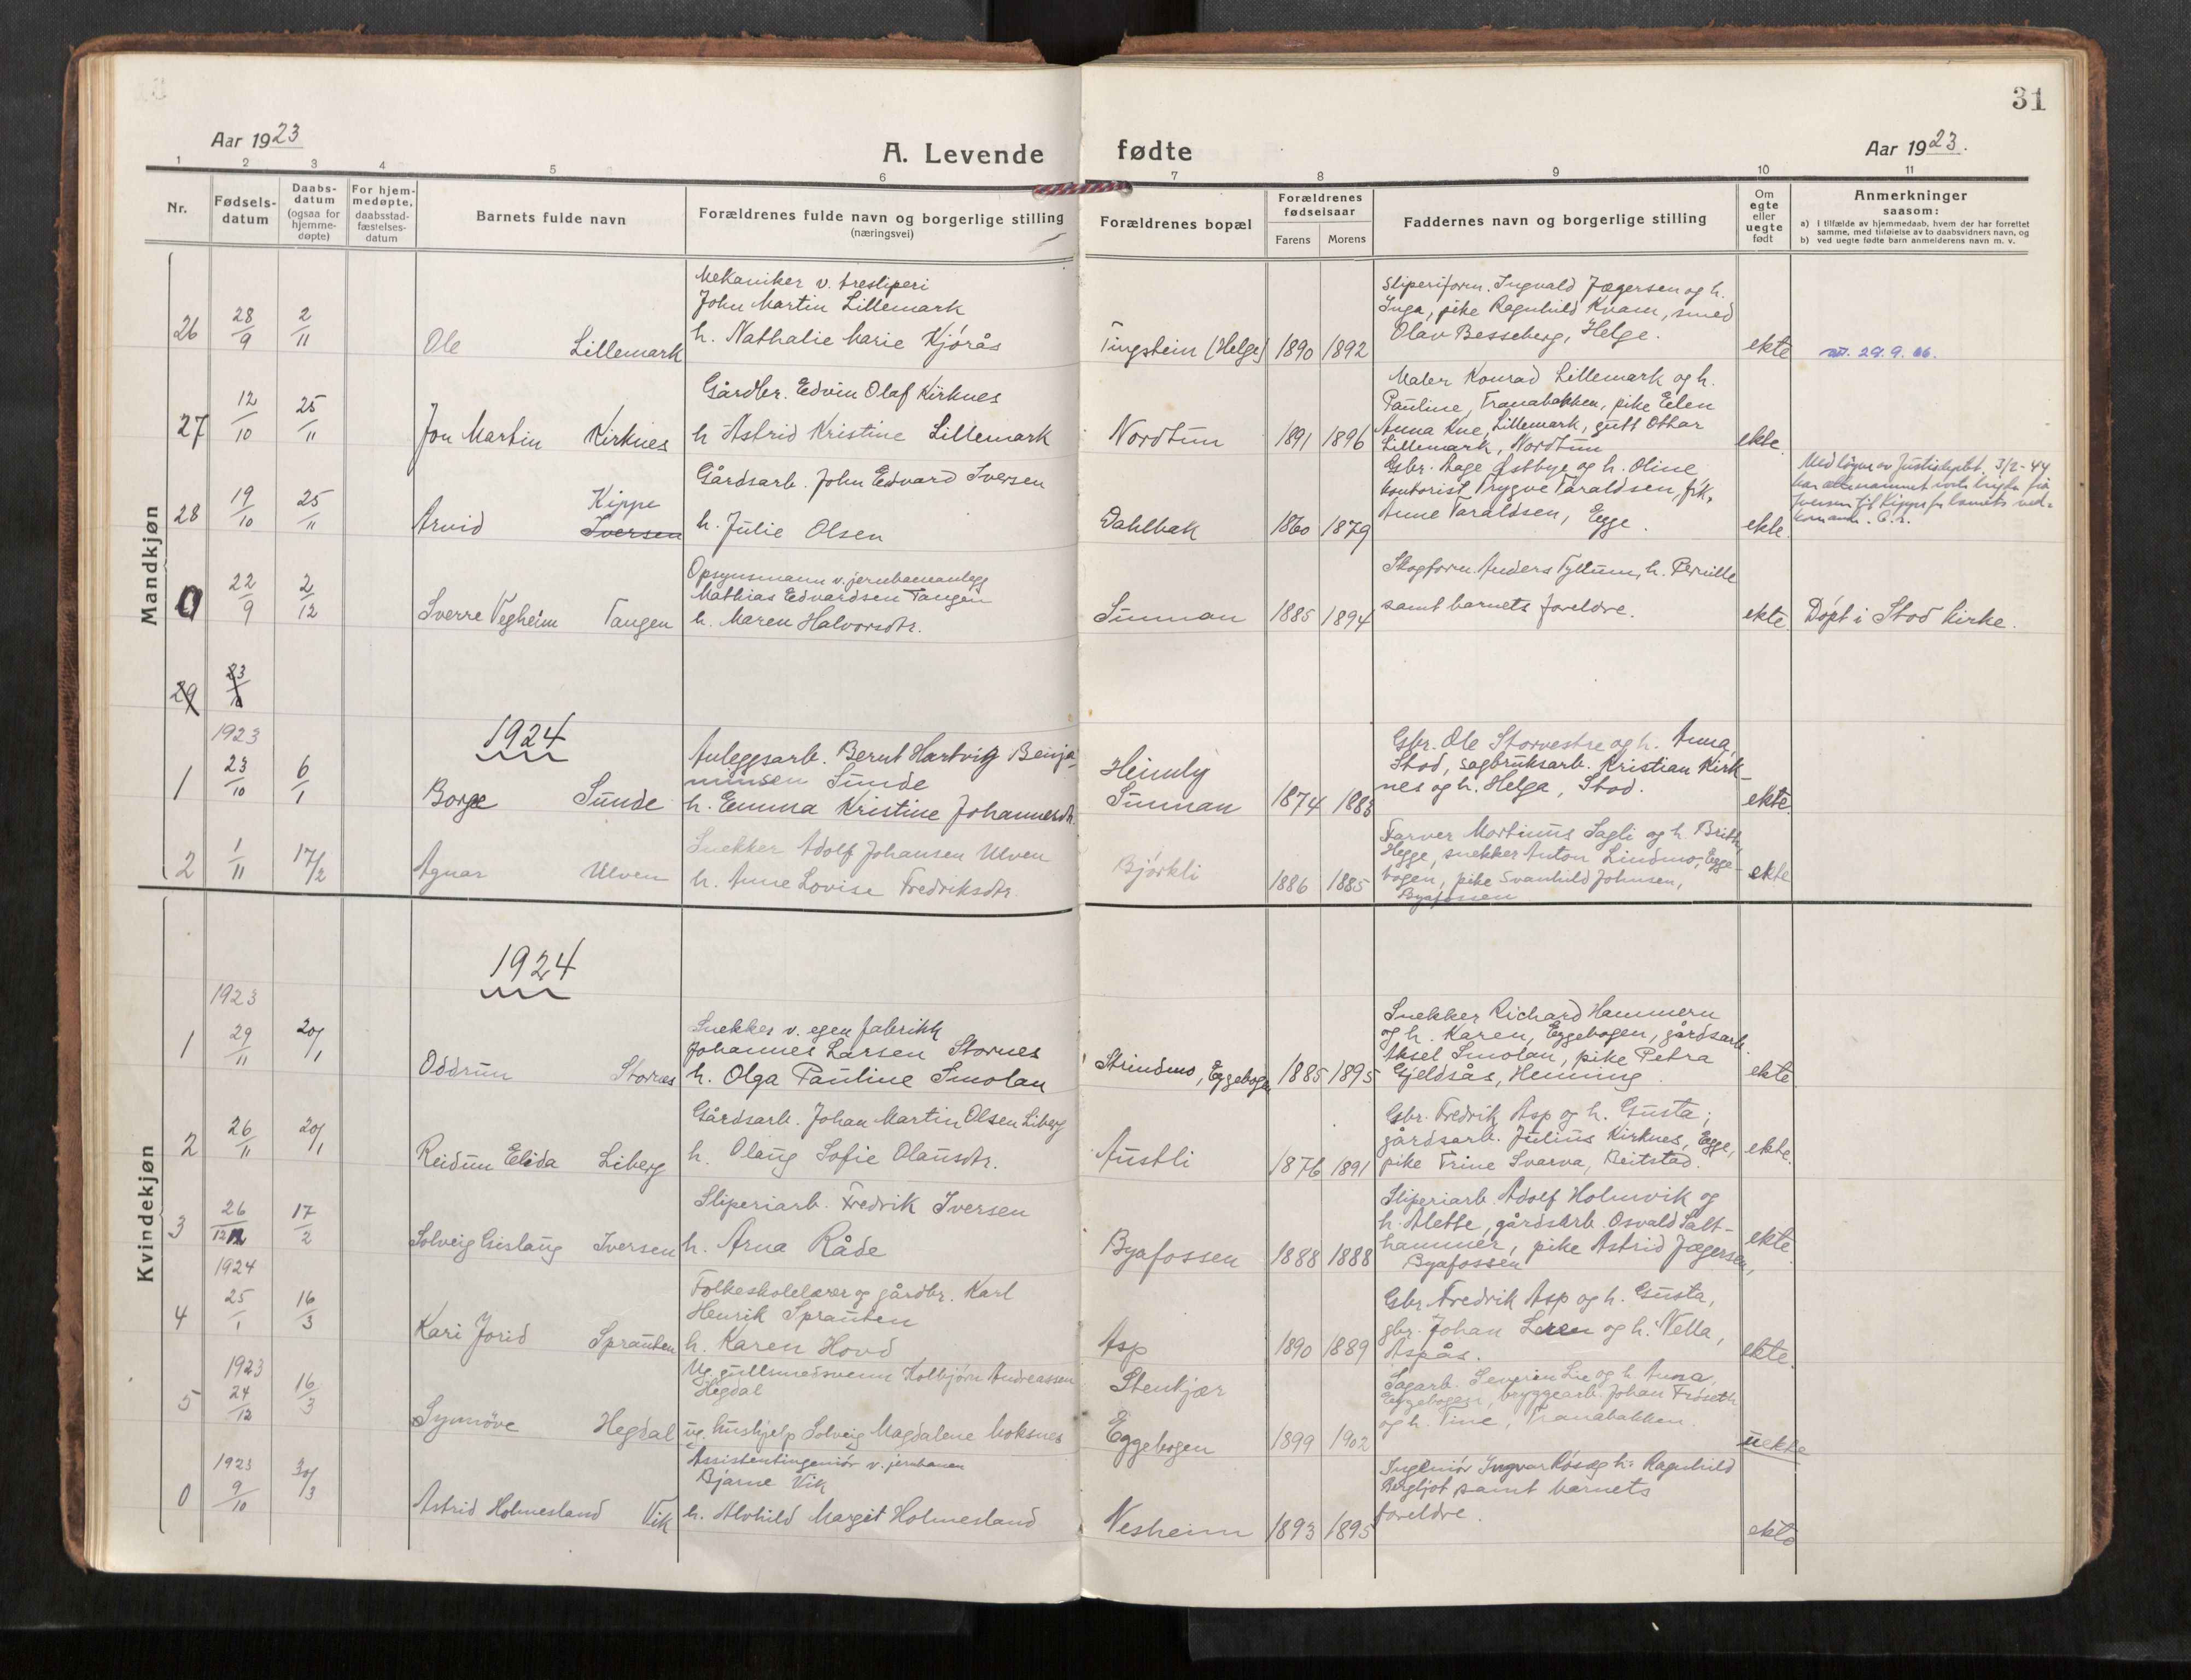 31
Aar 1923
A. Levende fødte
Aar 1923.
1 2 3 4 5 6 7 8 9 10 11
Nr.
Fødsels-
datum
Daabs-
datum
(ogsaa for
hjemme-
døpte)
For hjem-
medøpte,
daabsstad-
fæstelses-
datum
Barnets fulde navn
Forældrenes fulde navn og borgerlige stilling
(næringsvei)
Forældrenes bopæl
Forældrenes
fødselsaar
Farens Morens
Faddernes navn og borgerlige stilling
Om
egte
eller
uegte
født
Anmerkninger
saasom:
a) I tilfælde av hjemmedaab, hvem der har forrettet
samme, med tilføielse av to daabsvidners navn, og
b) ved uegte fødte barn anmelderens navn m. v.
Mandkjøn
26 28/9 2/11 Ole Lillemark
Mekaniker v. tresliperi
John Martin Lillemark
h. Nathalie Marie Kjørås
Tingstein (Helge) 1890 1892
Sliperiform. Ingvald Jægersen og h.
Inga, pike Ragnhild Kvam, smed
Olav Besseberg, Helge.
ekte
29.9.66.
27 12/10 25/11 Jon Martin Kirknes
Gårdbr. Edvin Olaf Kirknes
h. Astrid Kristine Lillemark
Nordtun 1891 1896
Maler Konrad Lillemark og h.
Pauline, Tranabakken, pike Elen
Anna Kne, Lillemark, gutt Ottar
Lillemark, Nordtun
ekte.
28 19/10 25/11 Arvid Kippe
Iversen
Gårdsarb. John Edvard Iversen
h. Julie Olsen
Dahlbak 1860 1879
Gbr. Aage Østbye og h. Oline
kontorist Trygve Taraldsen, frk.
Anne Taraldsen, Egge.
ekte.
Med løyve av Justisdeptet. 3/2-44
Iversen til Kippe for barnets ved-
kommande.
0 22/9 2/12 Sverre Vegheim Tangen
Opsynsmann v. jernbaneanlegg
Mathias Edvardsen Tangen
h. Maren Halvorsdtr.
Sunnan 1885 1894
Skogform. Anders Tyllum, h. Pernille
samt barnets foreldre.
ekte. Døpt i Stod kirke.
29 23/10
1923
1924
1 23/10 6/1 Borge Sunde
Anleggsarb. Bernt Hartvig Benja-
minsen Sunde
h. Emma Kristine Johannesdtr.
Heimly
Sunnan 1874 1883
Gbr. Ole Storvestre og h. Anna,
Stod, sagbruksarb. Kristian Kirk-
nes og h. Helga, Stod.
ekte.
2 1/11 17/2 Agnar Ulven
Snekker Adolf Johansen Ulven
h. Anne Lovise Fredriksdtr.
Bjørkli 1886 1885
Farver Martinus Sagli og h. Britt,
Hegge, snekker Anton Lindmo, Egge-
bogen, pike Svanhild Johnsen,
Byafossen
ekte
Kvindekjøn
1924
1923
1 29/11 20/1 Oddrun Stornes
Snekker v. egen fabrikk
Johannes Larsen Stornes
h. Olga Pauline Smolan
Strindmo, Eggebogen 1885 1895
Snekker Richard Hammern
og h. Karen, Eggebogen, gårdsarb.
Aksel Smolan, pike Petra
Gjeldsås, Henning.
ekte
2 26/11 20/1 Reidun Elida Liberg
Gårdsarb. Johan Martin Olsen Liberg
h. Olaug Sofie Olausdtr.
Austli 1876 1891
Gbr. Fredrik Asp og h. Gusta;
gårdsarb. Julius Kirknes, Egge,
pike Trine Svarva, Beitstad.
ekte.
3 26/12 17/2 Solveig Gislaug Iversen
Sliperiarb. Fredrik Iversen
h. Arna Råde
Byafossen 1888 1888
Sliperiarb. Adolf Holmvik og
h. Alette, gårdsarb. Osvald Salt-
hammer, pike Astrid Jægersen,
Byafossen
ekte.
1924
4 25/1 16/3 Kari Jorid Sprauten
Folkeskolelærer og gårdbr. Karl
Henrik Sprauten
h. Karen Hovd
Asp 1890 1889
Gbr. Fredrik Asp og h. Gusta,
gbr. Johan Leren og h. Nella,
Aspås.
ekte.
1923
5 24/12 16/3 Synnøve Hegdal
Ug. gullsmedsvenn Kolbjørn Andreassen
Hegdal
ug. hushjelp Solveig Magdalene Moksnes
Stenkjær
Eggebogen 1899 1902
Sagarb. Severin Lie og h. Anna,
Eggebogen, bryggearb. Johan Frøseth
og h. Tine, Tranabakken.
uekte
1923
0 9/10 30/3 Astrid Holmesland Vik
Assistentingeniør v. jernbanen
Bjarne Vik
h. Alvhild Margit Holmesland
Vesheim 1893 1895
Ingeniør Ingvar Røsæg h. Ragnhild
Bergljot samt barnets
foreldre.
ekte